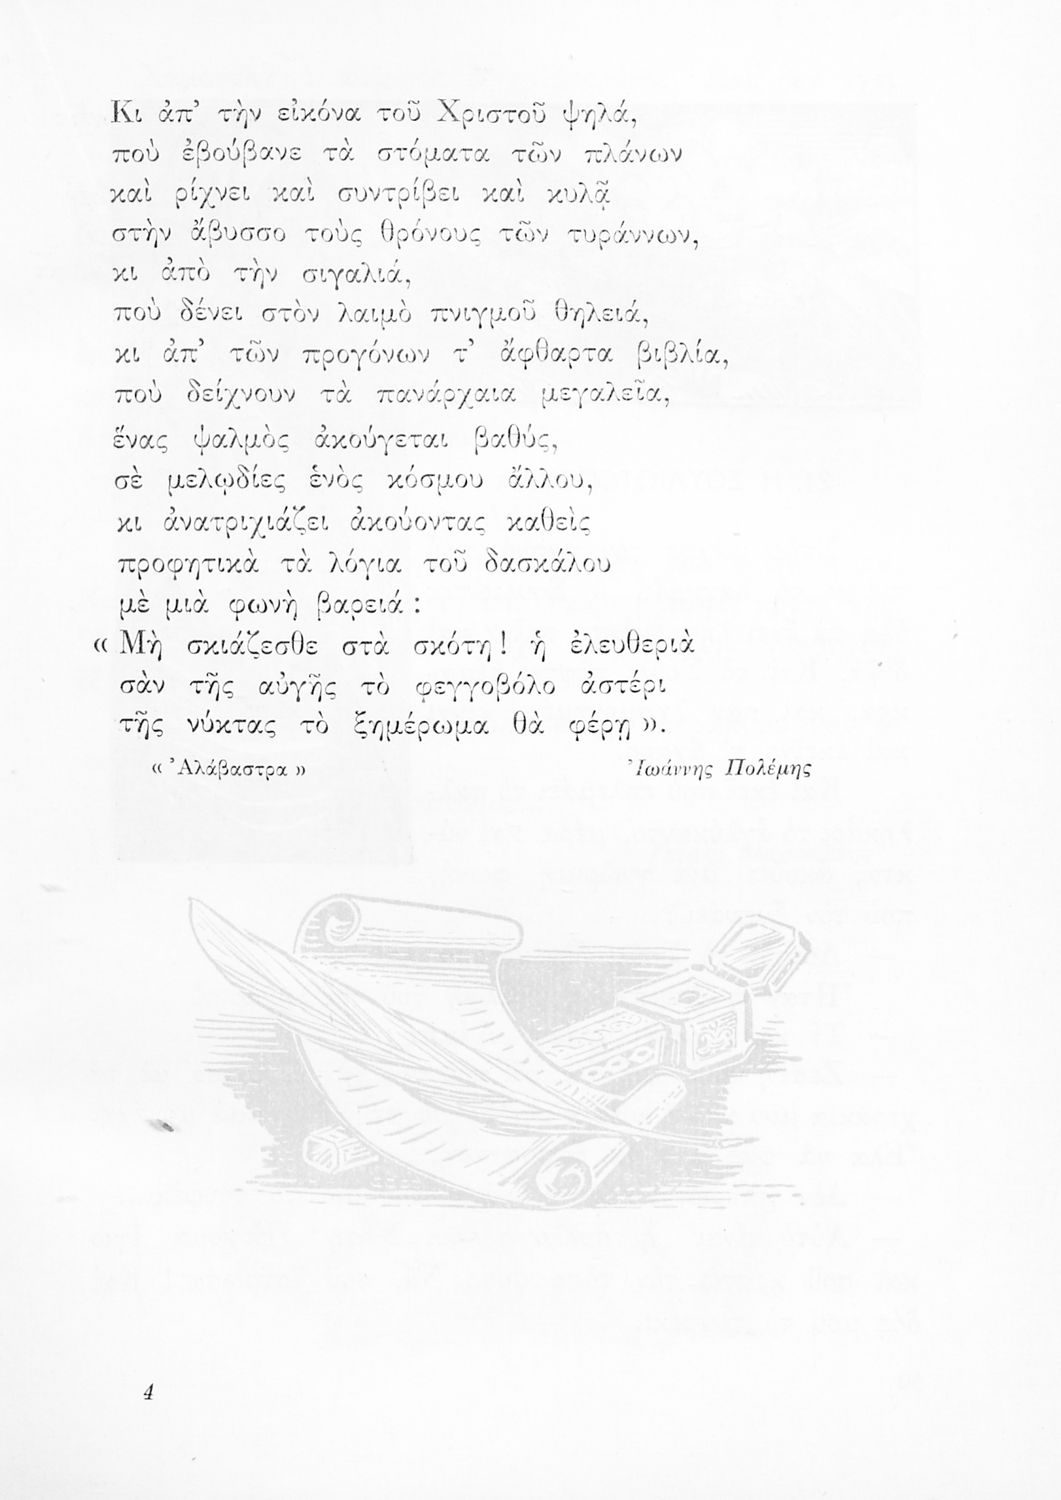 Κι ἀπ’ τὴν εἰκόνα τοῦ Χριστοῦ ψηλά,
ποὺ ἐβούβανε τὰ στόματα τῶν πλάνων
καὶ ρίχνει καὶ συντρίβει καὶ κυλᾷ
στὴν ἄβυσσο τοὺς θρόνους τῶν τυράννων,
κι ἀπὸ τὴν σιγαλιά,
ποὺ δένει στὸν λαιμὸ πνιγμοῦ θηλειά,
κι ἀπ’ τῶν προγόνων τ’ ἄφθαρτα βιβλία,
ποὺ δείχνουν τὰ πανάρχαια μεγαλεῖα,
ἕνας ψαλμὸς ἀκούγεται βαθύς,
σὲ μελῳδίες ἑνὸς κόσμου ἄλλου,
κι ἀνατριχιάζει ἀκούοντας καθεὶς
προφητικὰ τὰ λόγια τοῦ δασκάλου
μὲ μιὰ φωνὴ βαρειά :
« Μὴ σκιάζεσθε στὰ σκότη ! ἡ ἐλευθεριὰ
σὰν τῆς αὐγῆς τὸ φεγγοβόλο ἀστέρι
τῆς νύκτας τὸ ξημέρωμα θὰ φέρῃ ».
« Ἀλάβαστρα » Ἰωάννης Πολέμης
4